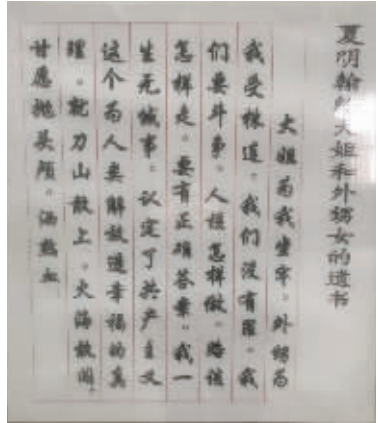 夏明翰给大姐和外甥女的遗书
大姐为我坐牢。外甥为
我受株连。我们没有罪。我
们要斗争。人该怎样做。路该
怎样走。要有正确答案。我一
生无憾事。认定了共产主义
这个为人类解放造幸福的真
理。就刀山敢上。火海敢闯。
甘愿抛头颅。洒热血